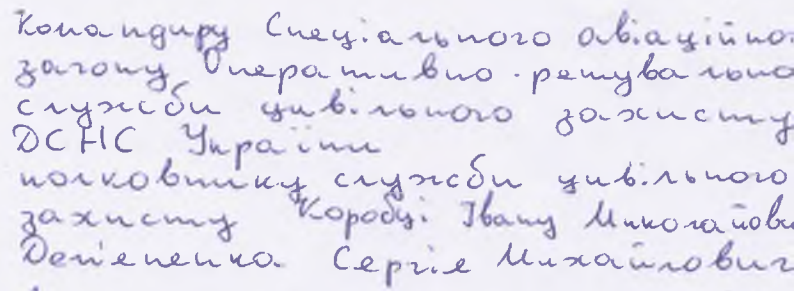 Командиру Спеціального авіаційно
загону Оперативно-рятувально
служби цивільного захисту
ДСНС України
полковнику служби цивільного
захисту Коробці Івану Миколайови
Сергія Михайлович